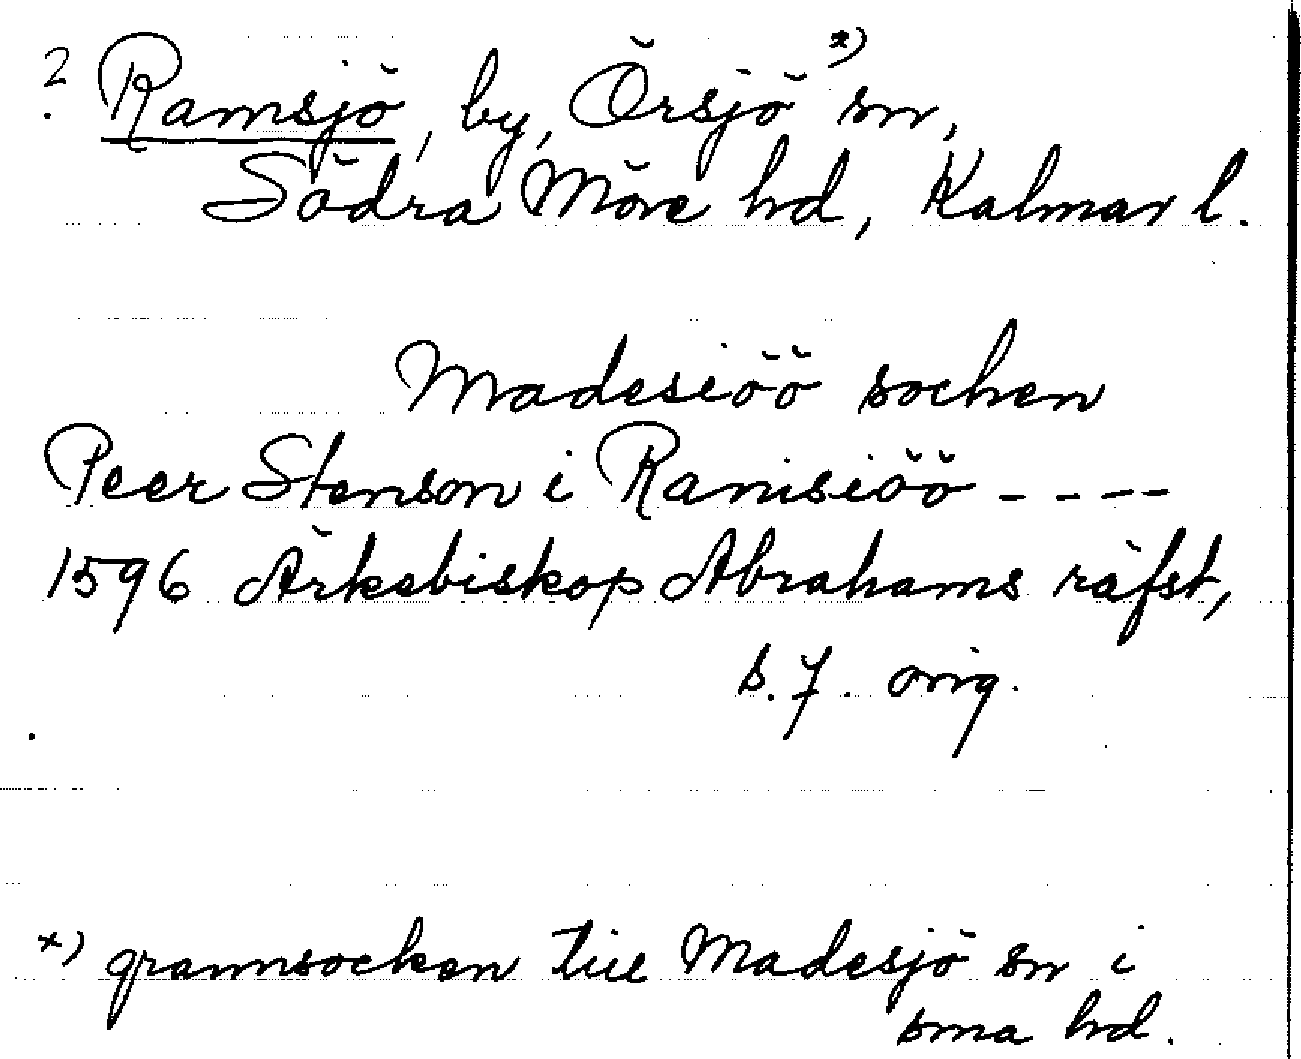 ? Ramsjö, by, Örsjö *) sn,
Södra Möre hd, Kalmar l.
Madesiöö sochen
Peer Stenson i Ramsiöö - - - -
1596 Ärkebiskop Abrahams räfst,
s. 7. orig.
*) grannsocken till Madesjö sn i
sma hd.